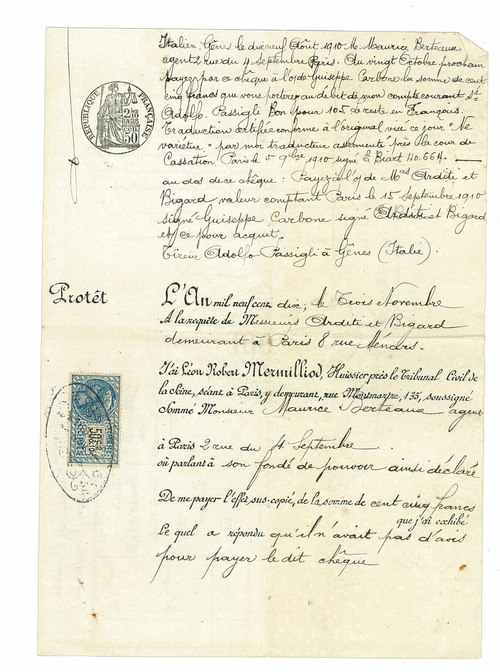 Italien: Gênes le dix neuf Août 1910 M. Maurice Berteaux
agent 2 rue du 4 septembre Paris. Au vingt Octobre prochain
payez par ce chèque à l'o/ de Guiseppe Carbone la somme de cent
cinq francs que vous porterez au débit de mon compte courant
Adolfo. Passigli Bon pour 105 Le reste en Français.
Traduction certifiée conforme à l'original visé ce jour "Ne
varietur" par moi traducteur assermenté près la cour de
Cassation Paris le 5 9bre 1910 signé E Biart No 664.
au dos de ce chèque: Payez à l'o/ de Mrs Ardite et
Bigard valeur comptant Paris le 15 Septembre 1910
signé Guiseppe Carbone signé Ardite et Bigard
et ce pour acquit.
Tireur Adolfo Passigli à Gênes (Italie).
RÉPUBLIQUE FRANÇAISE
50c
Protêt
L'An mil neuf cent dix, le Trois Novembre
A la requête de Messieurs Ardite et Bigard
demeurant à Paris 8 rue Ménars.
J'ai Léon Robert Mermilliod, Huissier près le Tribunal Civil de
la Seine, séant à Paris, y demeurant, rue Montmartre, 135, soussigné
Sommé Monsieur Maurice Berteaux agent
à Paris 2 rue du 4 Septembre
où parlant à son fondé de pouvoir ainsi déclaré
De me payer l'effet sus-copié, de la somme de cent cinq francs
que j'ai exhibé
Le quel a répondu qu'il n'avait pas d'avis
pour payer le dit chèque